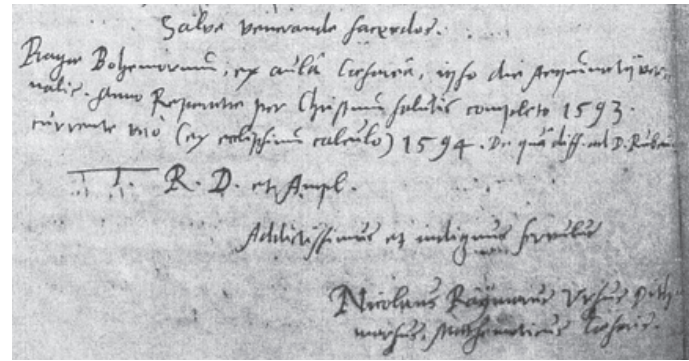 Salve venerande sacerdos.
Pragæ Bohemorum, ex aulâ Cæsareâ, ipso die Aequinoctij ver-
nalis. Anno Reparatæ per Christum salutis completo 1593.
currente verò (ex ecclipsium calculo) 1594. De quâ diff. ad D. Ruben
T. R. D. et Ampl.
Addictissimus et indignus servulus
Nicolaus Raymarus Ursus Dith-
marsus. Mathematicus Cæsaris.